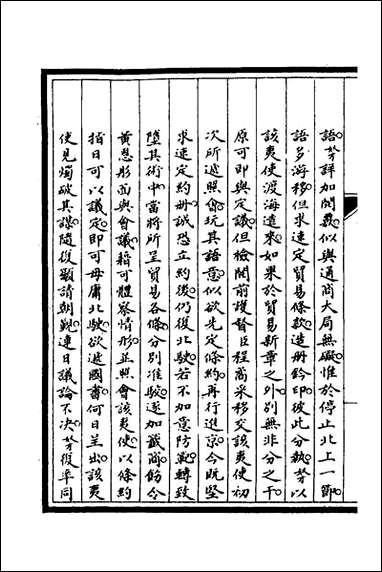 語。芳詳加開覈。似與通商大局無礙。惟於停止北上一節
語多游移。但求速定貿易條款。造冊鈐印。彼此分執。芳以
該夷使渡海遠來。如果於貿易新章之外。別無非分之干
原可即與定議。但檢閱前護督臣程矞采移交該夷使初
次所遞照會。玩其語意。似欲先定條約。再行進京。今既堅
求速定約冊。誠恐立約後。仍復北駛。若不加意防範。轉致
墮其術中。當將所呈貿易各條。分別准駁。逐加籤商。飭令
黃恩彤面與會議。藉可體察情形。並照會該夷使。以條約
指日可以議定。即可毋庸北駛。欲遞國書。何日呈出。該夷
使見燭破其謀。隨復顯請朝覲。連日議論不決。芳復率同